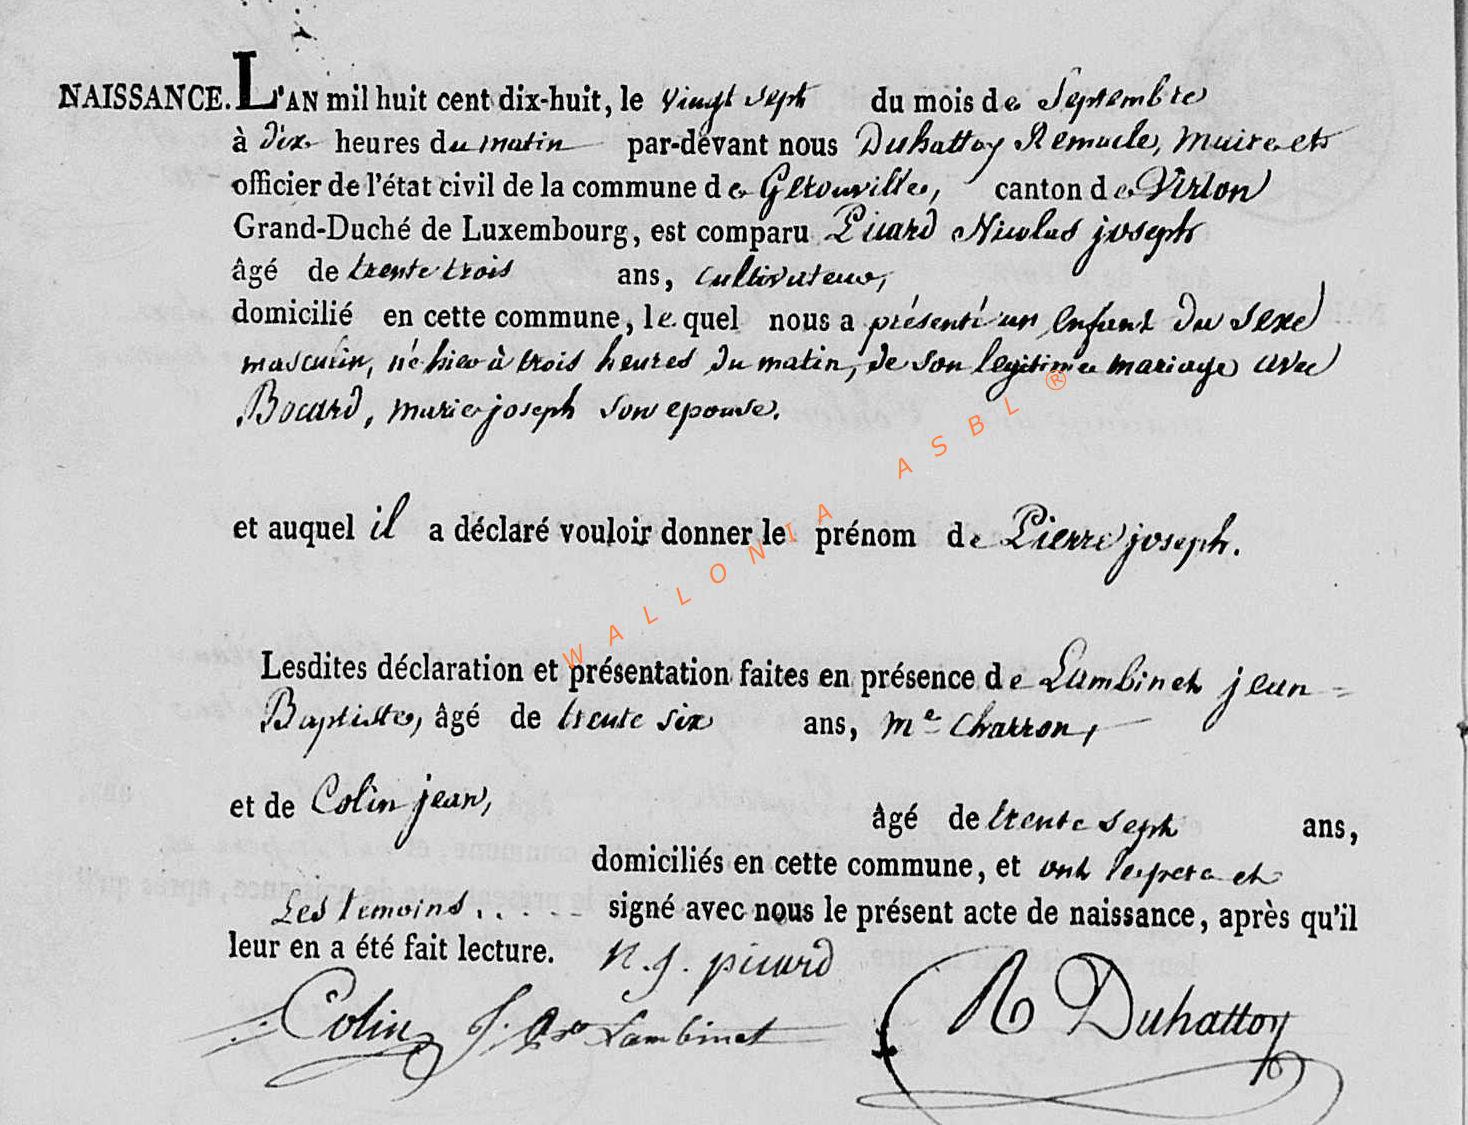 NAISSANCE. L'AN mil huit cent dix-huit, le vingt sept du mois de Septembre
à dix heures du matin par-devant nous Duhattoy Remacle, Maire et
officier de l'état civil de la commune de Gérouville, canton de Virton
Grand-Duché de Luxembourg, est comparu Picard Nicolas joseph
âgé de trente trois ans, cultivateur,
domicilié en cette commune, le quel nous a présenté un enfant du sexe
masculin, né hier à trois heures du matin, de son legitime mariage avec
Bocard, marie joseph son epouse.
et auquel il a déclaré vouloir donner le prénom de Pierre joseph.
Lesdites déclaration et présentation faites en présence de Lambinet jean =
Baptiste, âgé de trente six ans, me charron,
et de Colin jean, âgé de trente sept ans,
domiciliés en cette commune, et ont le pere et
Les temoins..... signé avec nous le présent acte de naissance, après qu'il
leur en a été fait lecture. N. J. picard
Colin J. Bte Lambinet R Duhattoy
WALLONIA ASBL ®